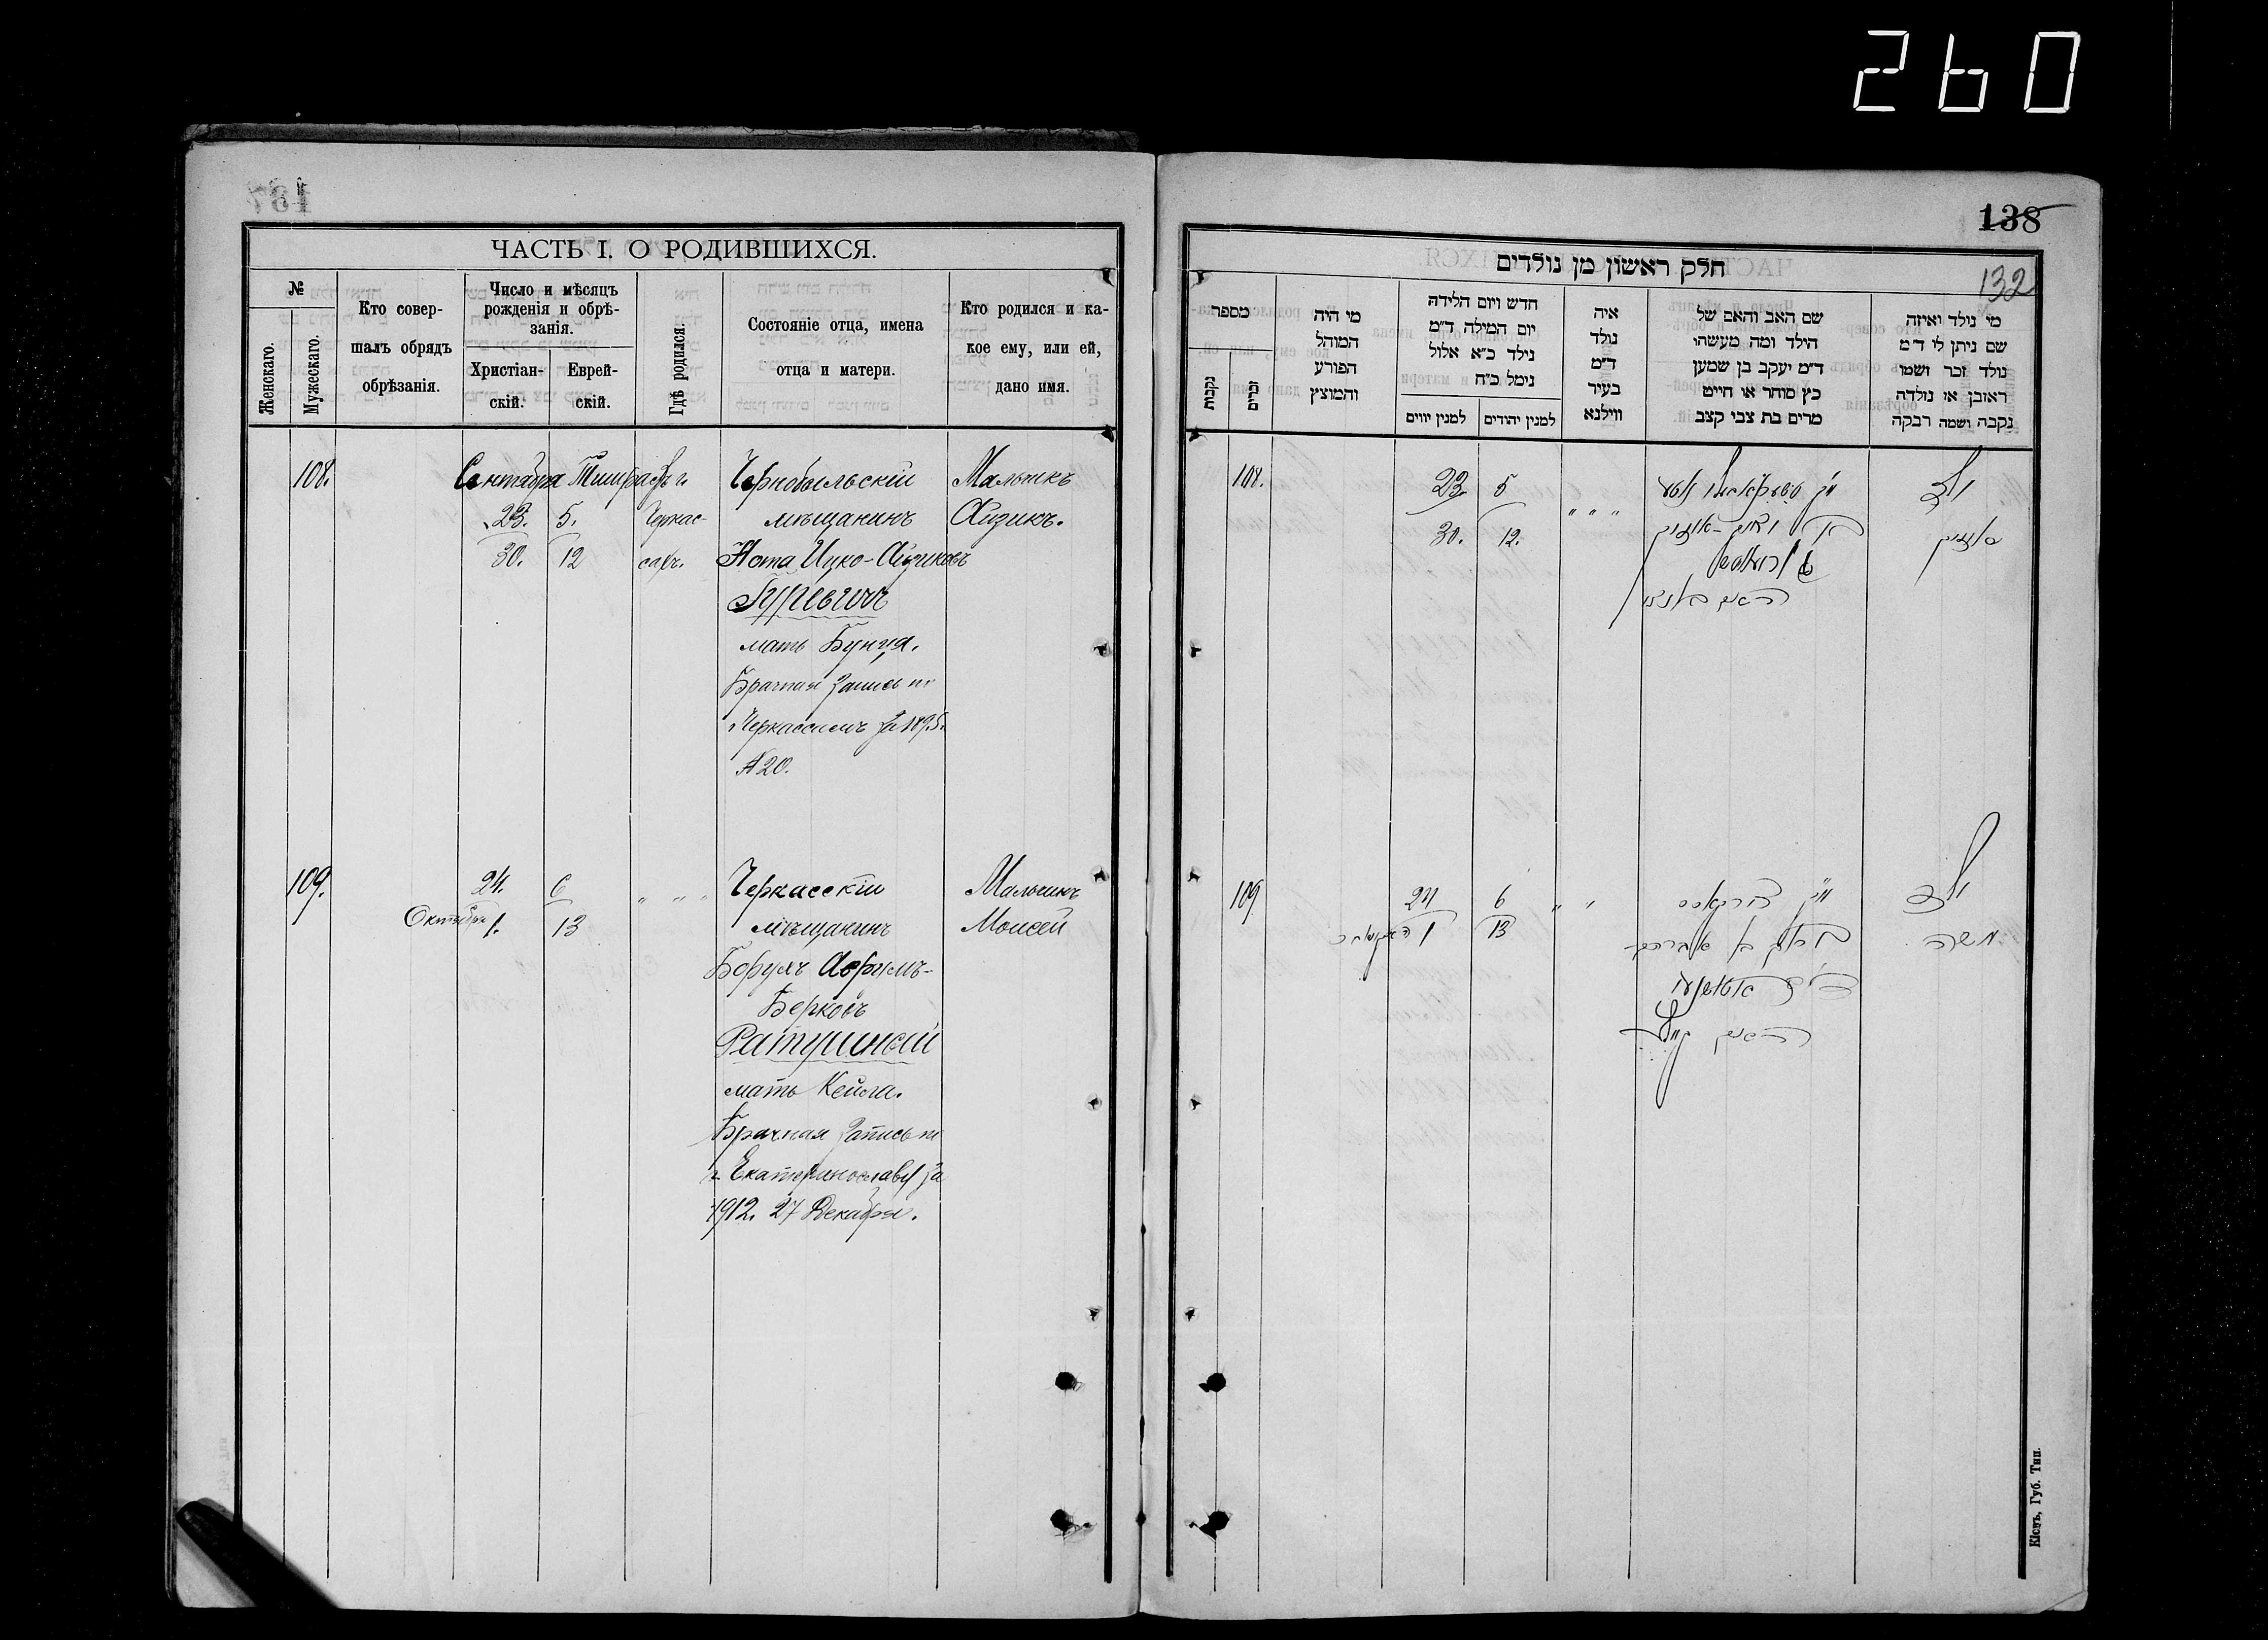 260
137
ЧАСТЬ I. О РОДИВШИХСЯ.
№
Женскаго.
Мужескаго.
Кто совер-
шалъ обрядъ
обрѣзанія.
Число и мѣсяцъ
рожденія и обрѣ-
занія.
Христіан-
скій.
Еврей-
скій.
Гдѣ родился.
Состояніе отца, имена
отца и матери.
Кто родился и ка-
кое ему, или ей,
дано имя.
108.
Сентября Тишрей
23. 5.
30. 12
Въ г.
Черкас-
сахъ.
Чернобыльскій
мѣщанинъ
Нота Ицко-Айзиковъ
Гуревичъ
мать Бунця.
Брачная запись въ
Черкассахъ за 1895
№ 20.
Мальчикъ
Айзикъ.
109.
24. 6
Октября 1. 13
" " "
Черкасскій
мѣщанинъ
Борухъ Аврумъ-
Берковъ
Ратушный
мать Кейла.
Брачная запись
г. Екатеринославу за
1912. 27 Декабря.
Мальчикъ
Моисей
138
132
חלק ראשון מן נולדים
מספר
נקבות
זכרים
מי היה
המוהל
הפורע
והמוצץ
חדש ויום הלידה
יום המילה ד״מ
נילד כ״א אלול
נימל כ״ח
למנין יווים
למנין יהודים
איה
נולד
ד״מ
בעיר
ווילנא
שם האב והאם של
הילד ומה מעשהו
ד״מ יעקב בן שמען
כץ סוחר או חייט
מרים בת צבי קצב
מי נולד ואיזה
שם ניתן לו ד״מ
נולד זכר ושמו
ראובן או נולדה
נקבה ושמה רבקה
108.
23. 5
30. 12.
" " "
ילד
אייזיק
109.
24 6
1 13
" "
ילד
משה
Кіевъ, Губ. Тип.